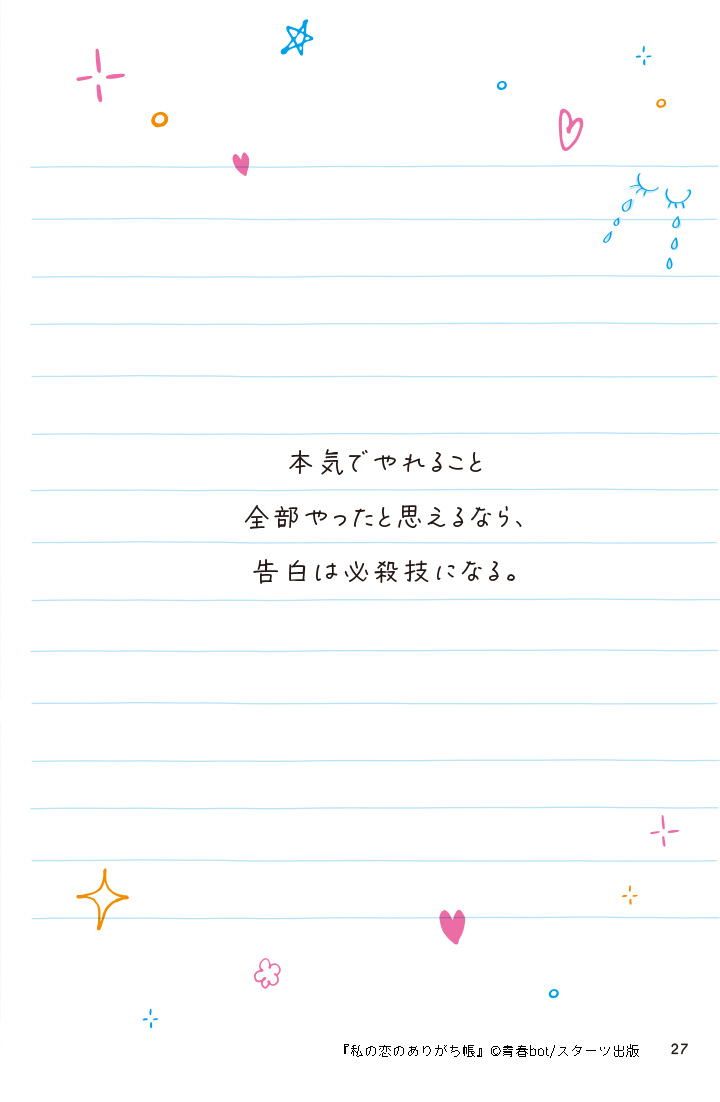 本気でやれること
全部やったと思えるなら、
告白は必殺技になる。
『私の恋のありがち帳』©青春bot/スターツ出版
27